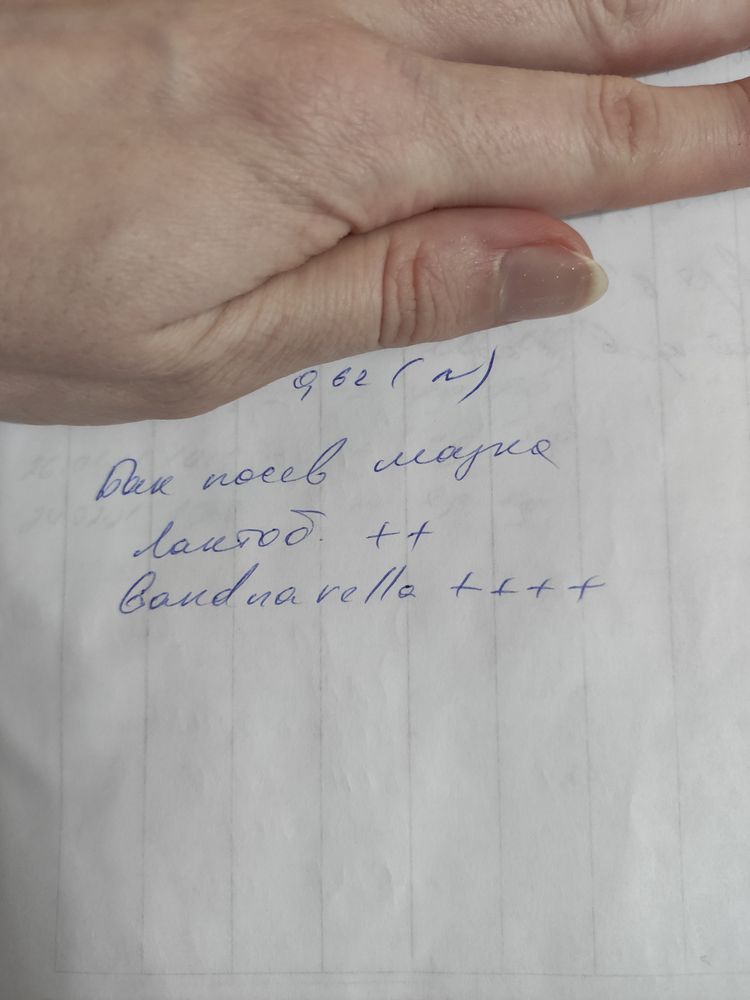 0,62 (~)
Бак посев мазка
Лактоб. ++
Gandnarella ++++